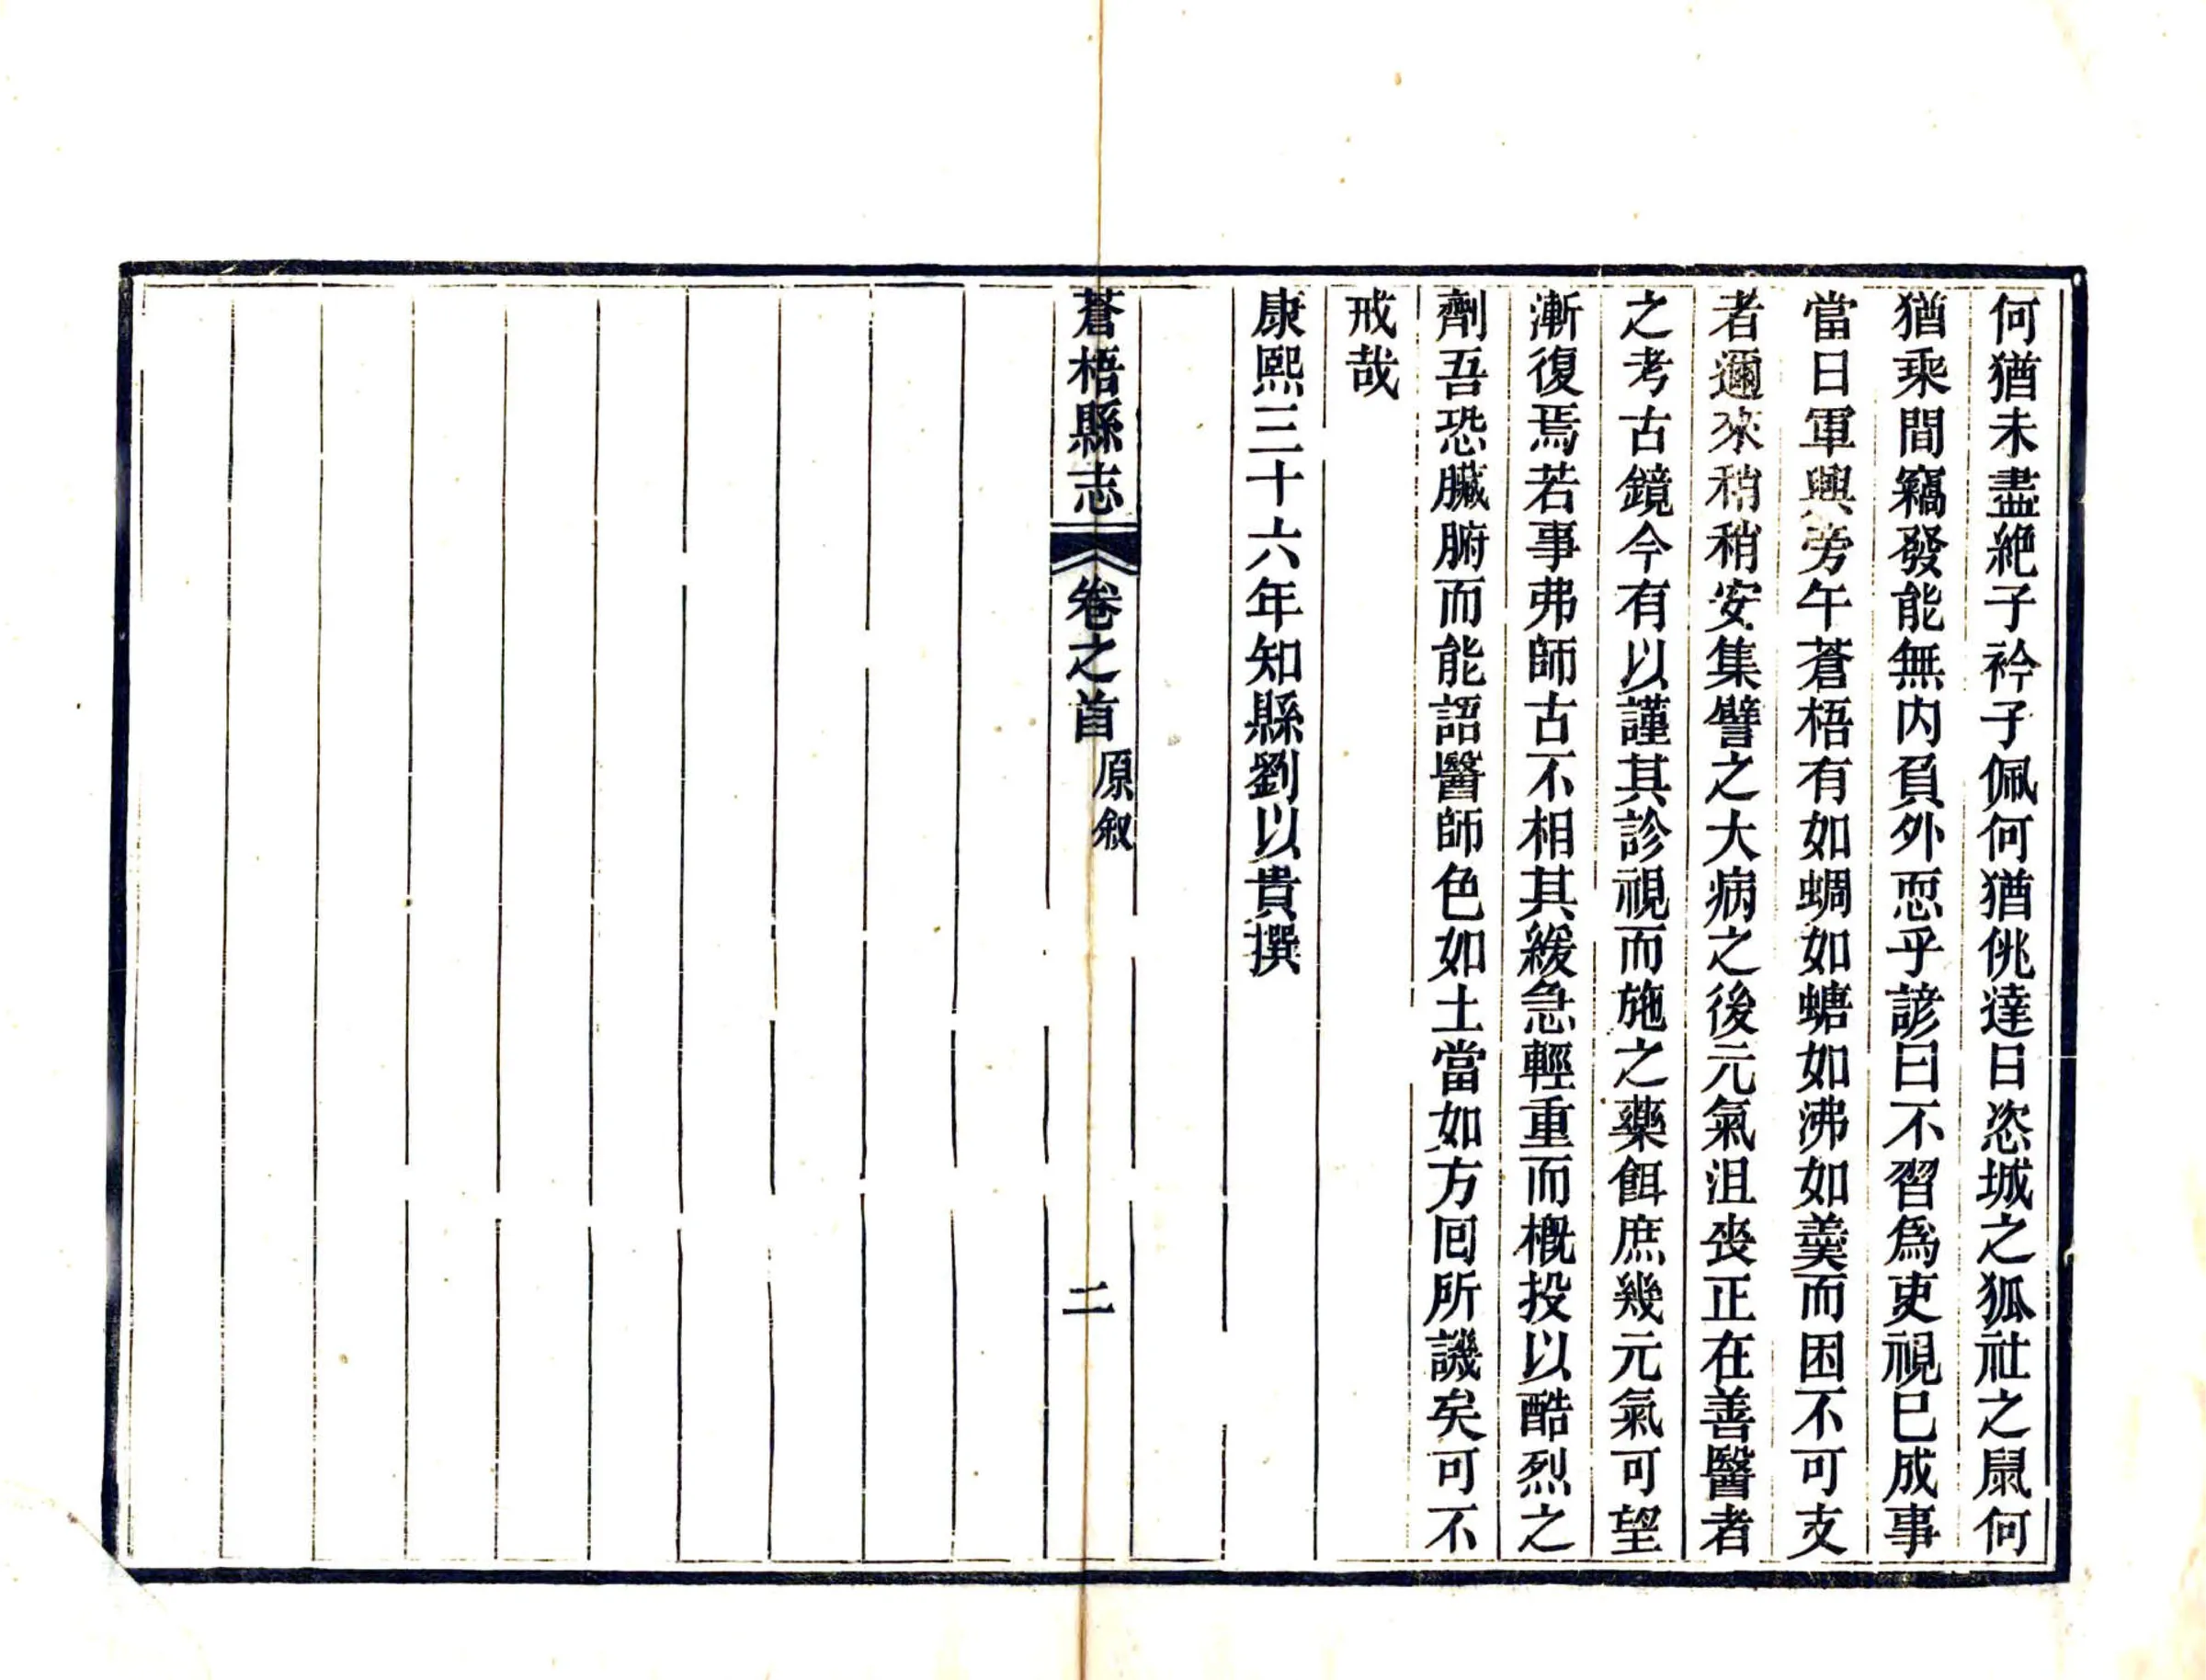 何猶未盡絶子衿子佩何猶佻達日恣城之狐社之鼠何
猶乘間竊發能無内負外恧乎諺曰不習爲吏視已成事
當日軍興旁午蒼梧有如蜩如螗如沸如羹而困不可支
者邇來稍稍安集譬之大病之後元氣沮喪正在善醫者
之考古鏡今有以謹其診視而施之藥餌庶幾元氣可望
漸復焉若事弗師古不相其緩急輕重而槪投以酷烈之
劑吾恐臟腑而能語醫師色如土當如方囘所譏矣可不
戒哉
康熙三十六年知縣劉以貴撰
蒼梧縣志 卷之首 原叙 二